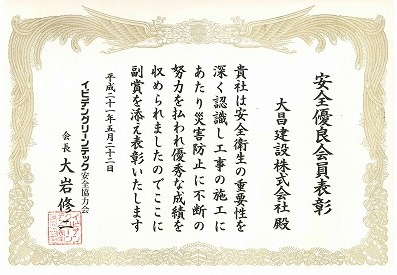 安全優良会員表彰
大昌建設株式会社 殿
貴社は安全衛生の重要性を
深く認識し工事の施工に
あたり災害防止に不断の
努力を払われ優秀な成績を
収められましたのでここに
副賞を添え表彰いたします
平成二十一年五月二十二日
イビデングリーンテック安全協力会
会長 大岩修二